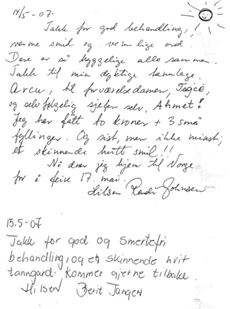 14/5-07.
Takk for god behandling,
varme smil og vennlige ord
Dere er så hyggelige alle sammen.
Takk til min dyktige tannlege
Arcu, til forværelsedamen,
og selvfølgelig sjefen selv, Ahmet!
Jeg har fått to kroner + 3 små
fyllinger. Og sist, men ikke minst;
et skinnende hvitt smil!!
Nå drar jeg hjem til Norge
for å feire 17. mai
Hilsen Johnsen
13.5-07
Takk for god og Smertefri
behandling, og et skinnende hvit
tanngard. Kommer gjerne tilbake.
Hilsen Berit